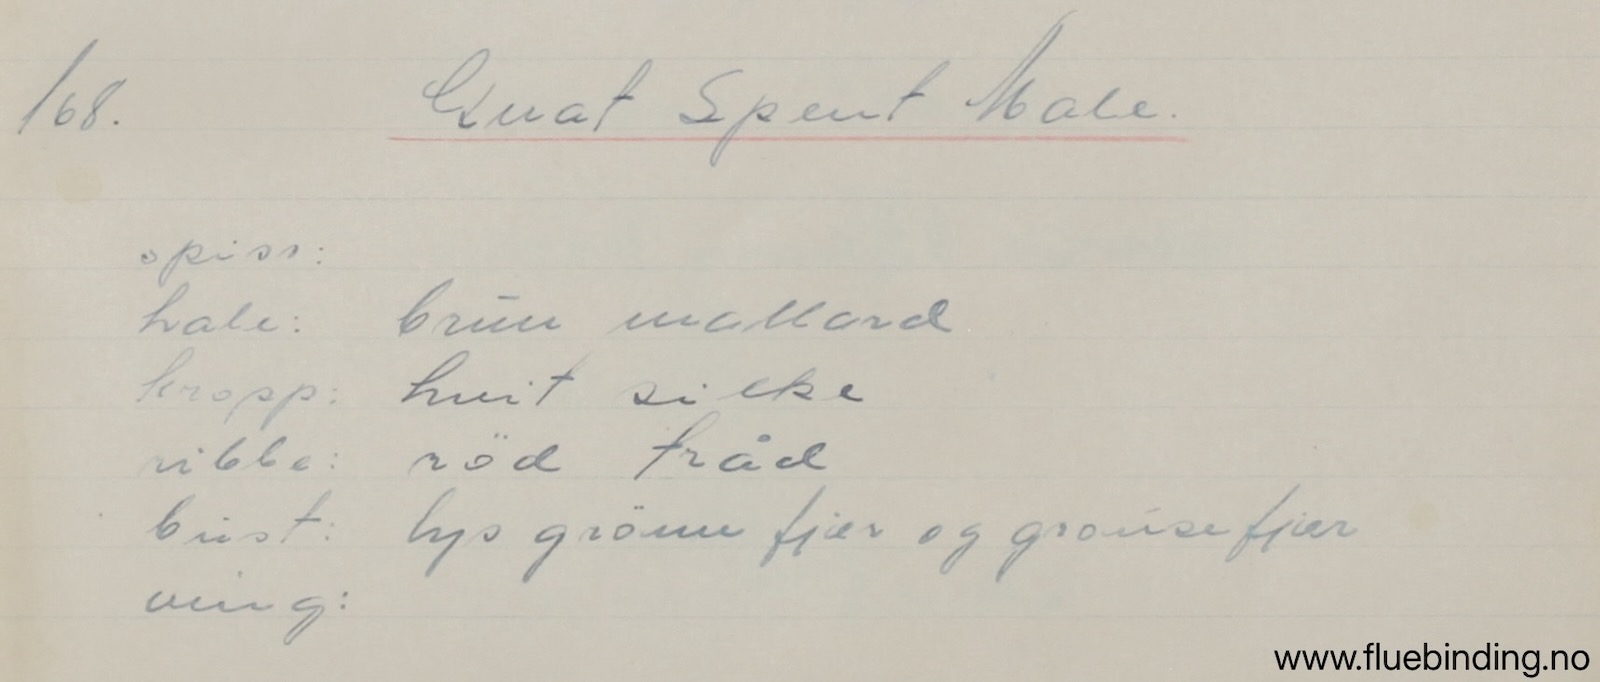 168. Gnat Spent Male.
spiss:
hale: brun mallard
kropp: hvit silke
ribbe: röd tråd
bust: lys grönn fjær og grouse fjær
ving:
www.fluebinding.no